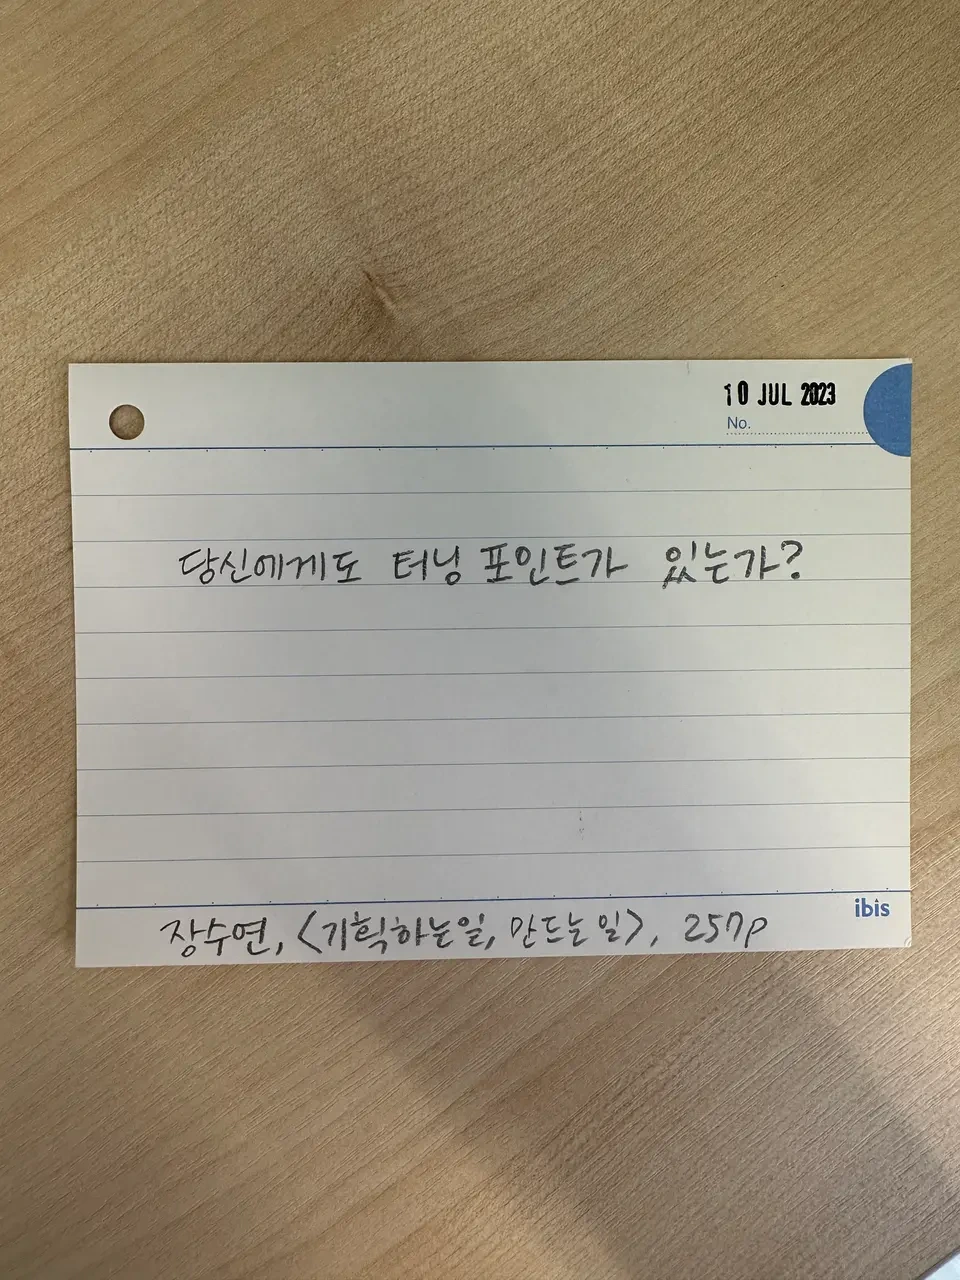 10 JUL 2023
No.
당신에게도 터닝 포인트가 있는가?
ibis
장수연, <기획하는일, 만드는일>, 257p